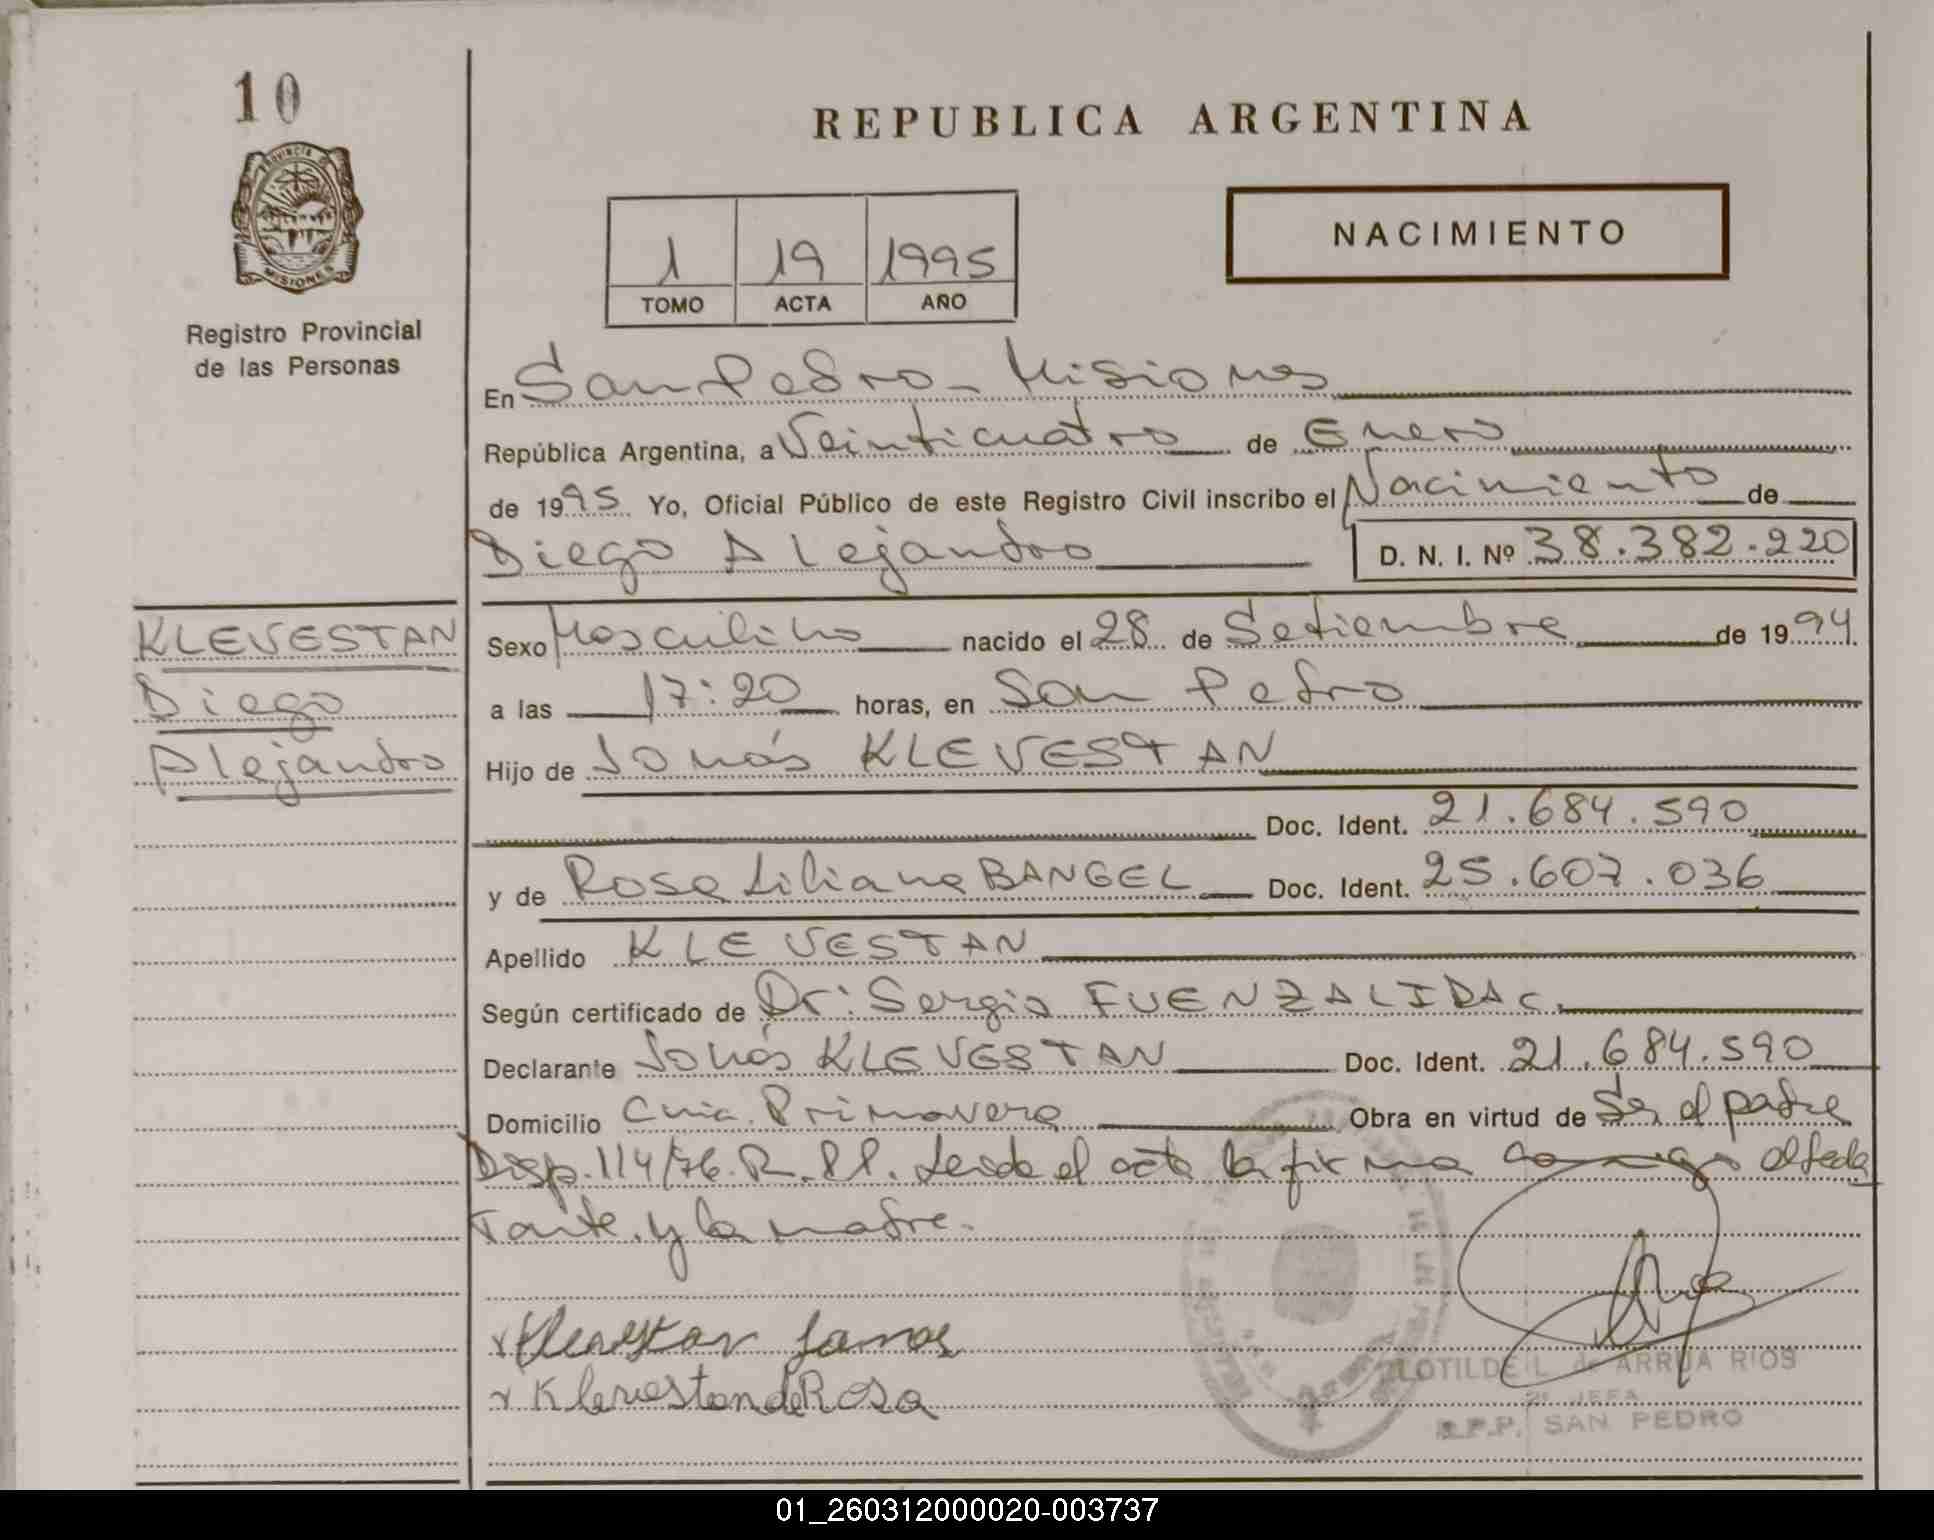 10
PROVINCIA DE
MISIONES
Registro Provincial
de las Personas
REPUBLICA ARGENTINA
1 19 1995
TOMO ACTA AÑO
NACIMIENTO
En San Pedro - Misiones
República Argentina, a Veinticuatro de Enero
de 1995 Yo, Oficial Público de este Registro Civil inscribo el Nacimiento de
Diego Alejandro D. N. I. Nº 38.382.220
KLEVESTAN
Diego
Alejandro
Sexo Masculino nacido el 28 de Setiembre de 1994
a las 17:20 horas, en San Pedro
Hijo de Jonás KLEVESTAN
Doc. Ident. 21.684.590
y de Rosa Liliana BANGEL Doc. Ident. 25.607.036
Apellido KLEVESTAN
Según certificado de Dr: Sergio FUENZALIDA C.
Declarante Jonás KLEVESTAN Doc. Ident. 21.684.590
Domicilio Cnia. Primavera Obra en virtud de Ser el padre
Disp. 114/76. R.P.P. Leida el acta la firma el decla
rante. y la madre.
Klevestan Jonas
Klevestan de Rosa
CLOTILDE L. de ARRUA RIOS
2º JEFA
R.P.P. SAN PEDRO
01_260312000020-003737